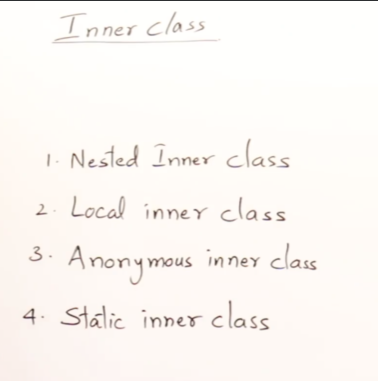 Inner class
1. Nested Inner class
2. Local inner class
3. Anonymous inner class
4. Static inner class